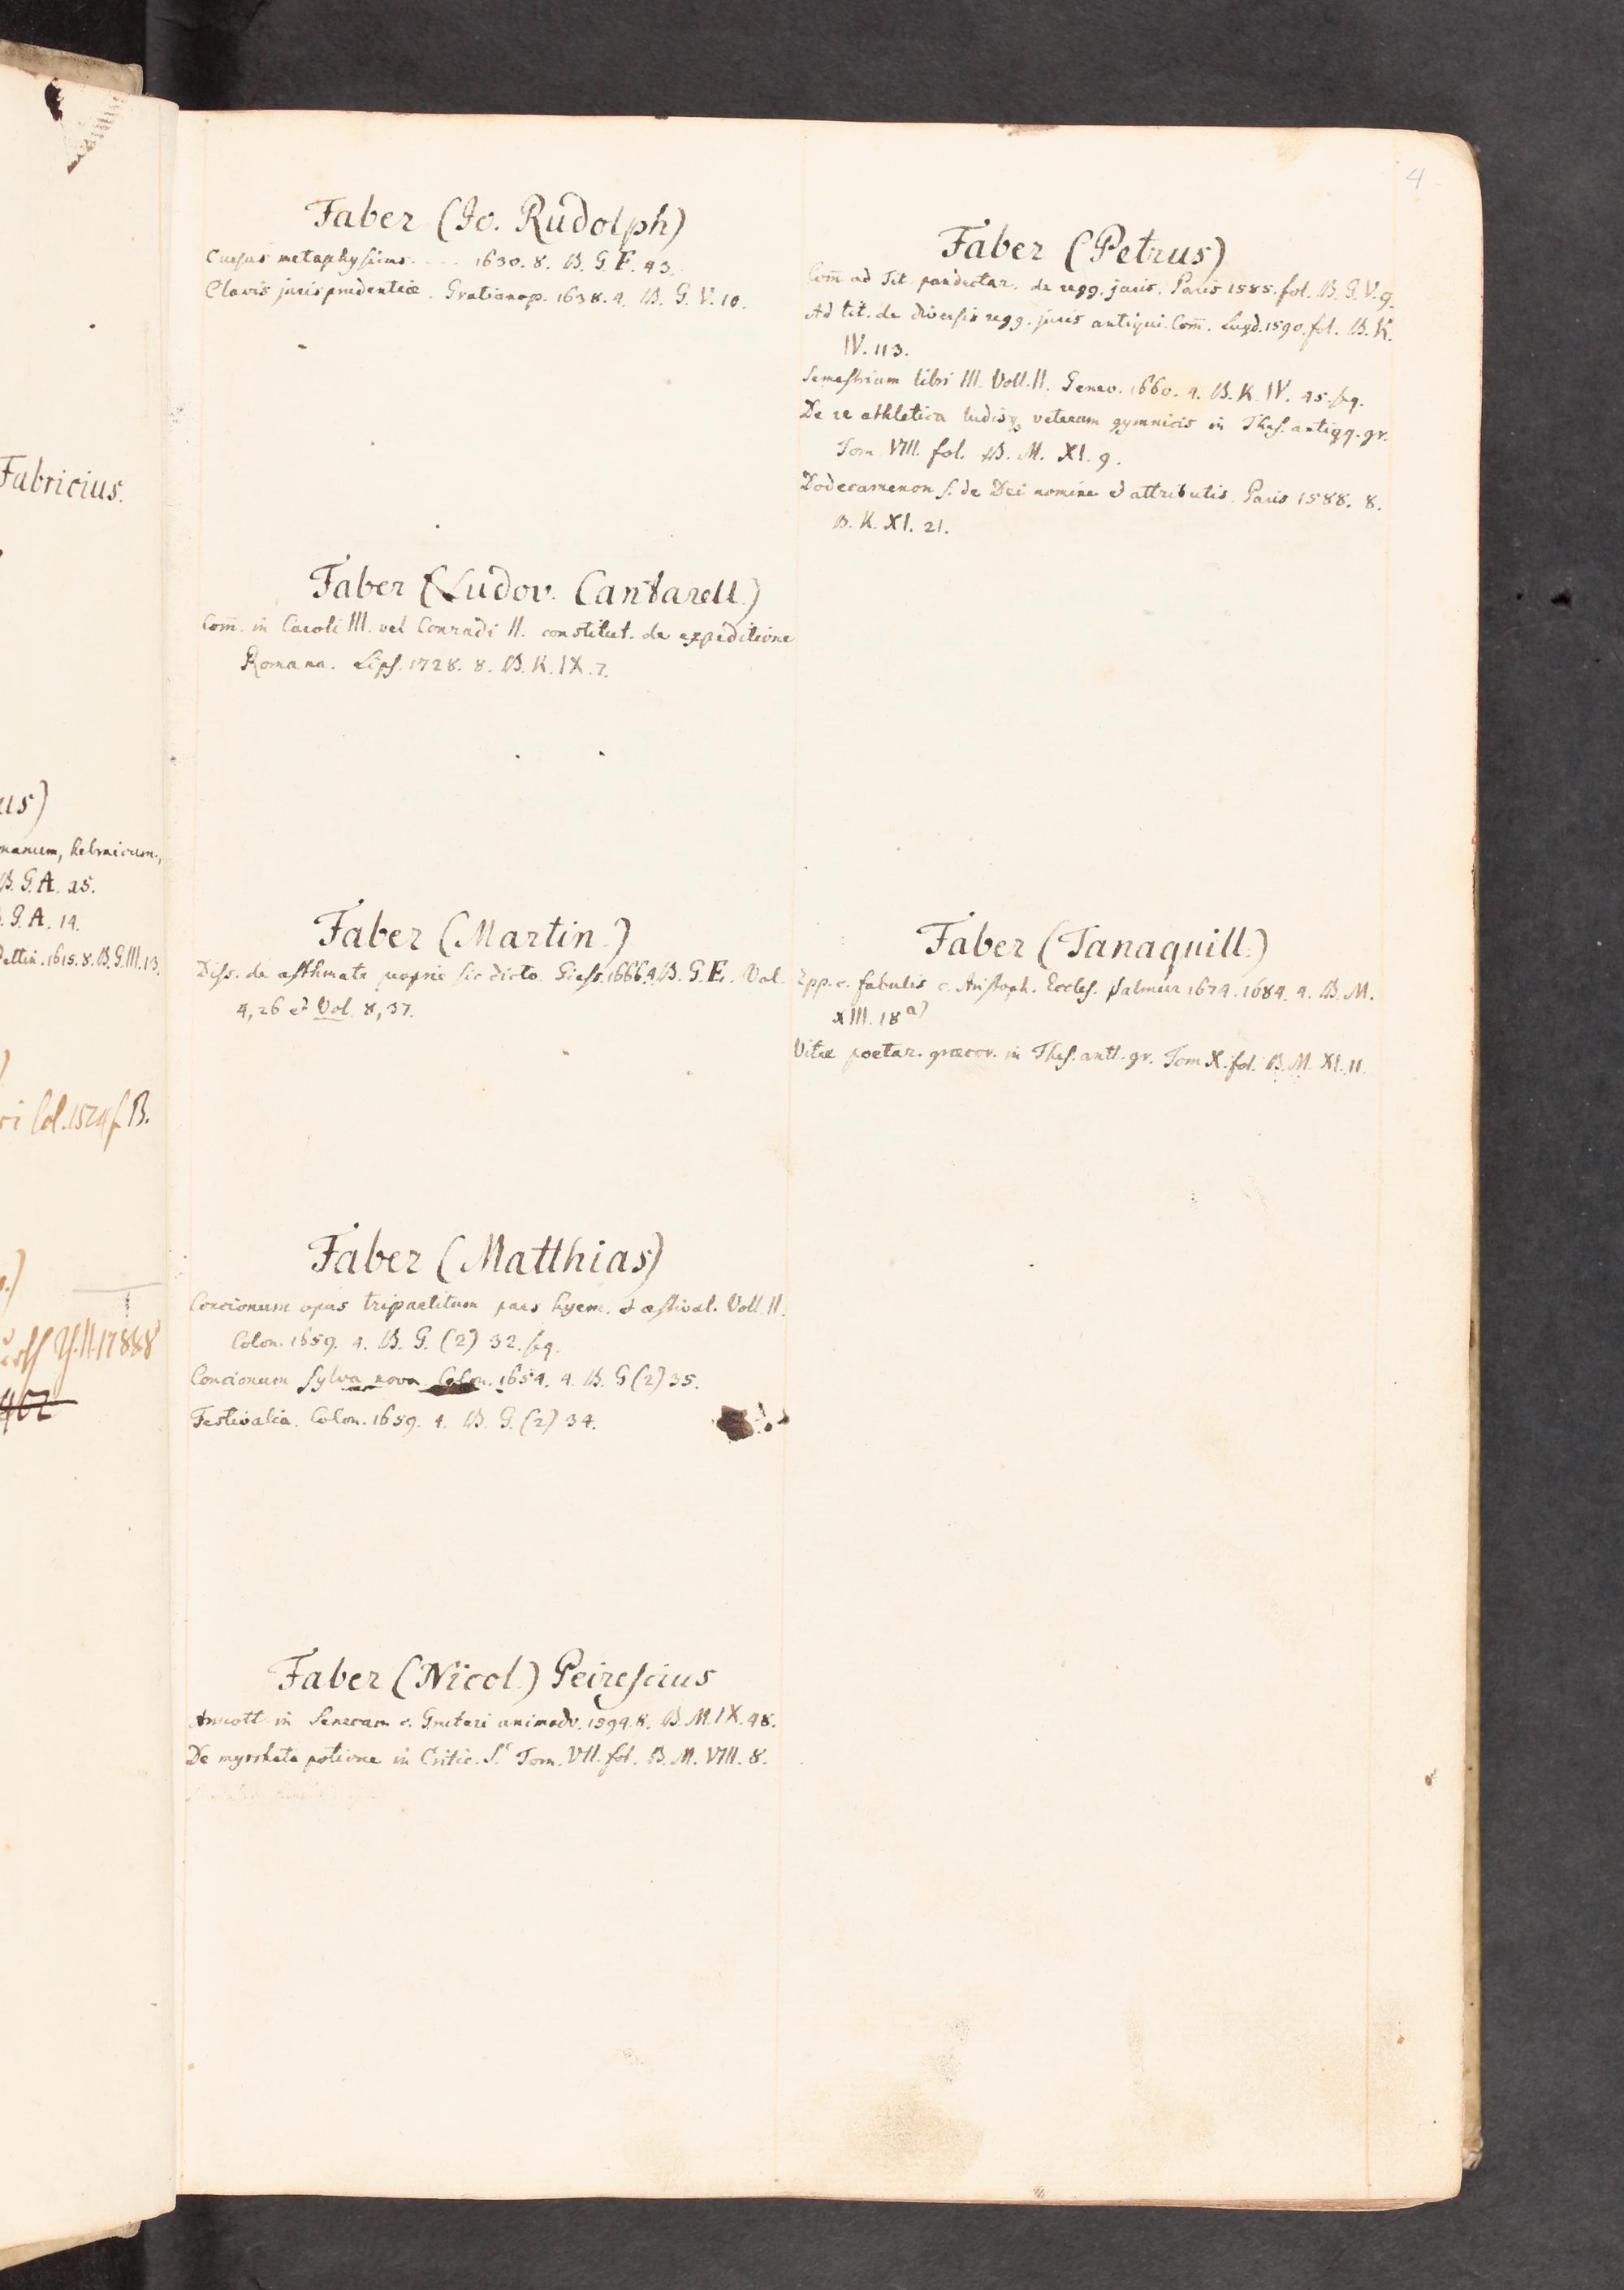 4
Faber (Jo. Rudolph)
Cursus metaphysicus. . . . 1630. 8. B. G. F. 43.
Clavis jurisprudentiæ. Gratianop. 1638. 4. B. G. V. 10.
Faber (Ludov. Cantarell.)
Com̄. in Caroli III. vel Conradi II. constitut. de expeditione
Romana. Lips. 1728. 8. B. K. IX. 7.
Faber (Martin.)
Diss. de asthmate proprie sic dicto. Giess. 1666. 4. B. G. E. Vol.
4, 26 et Vol. 8, 37.
Faber (Matthias)
Concionum opus tripartitum pars hyem. et æstival. Voll. II.
Colon. 1659. 4. B. G. (2) 32. sq.
Concionum sylva nova. Colon. 1654. 4. B. G (2) 35.
Festivalia. Colon. 1659. 4. B. G. (2) 34.
Faber (Nicol.) Peirescius
Annott. in Senecam c. Gruteri animadv. 1594. 8. B. M. IX. 48.
De myrrhata potione in Critic. S. Tom. VII. fol. B. M. VIII. 8.
Faber (Petrus)
Com̄ ad Tit. pandectar. de regg. juris. Paris 1585. fol. B. G. V. 9.
Ad tit. de diversis regg. juris antiqui Com̄. Lugd. 1590. fol. B. K.
IV. 113.
Semestrium libri III. Voll. II. Genev. 1660. 4. B. K. IV. 45. sq.
De re athletica ludisq. veterum gymnicis in Thes. antiqq. gr.
Tom. VIII. fol. B. M. XI. 9.
Dodecamenon s. de Dei nomine et attributis. Paris 1588. 8.
B. K. XI. 21.
Faber (Tanaquill.)
Epp. c. fabulis c. Aristoph. Eccles. Salmur 1674. 1684. 4. B. M.
XIII. 18 a)
Vitæ poetar. græcor. in Thes. antt. gr. Tom X. fol. B. M. XI. 11.
Fabricius.
us)
manum, hebraicum,
B. G. A. 25.
. G. A. 14.
1615. 8. B. G. III. 13.
ri Col. 1524 f B.